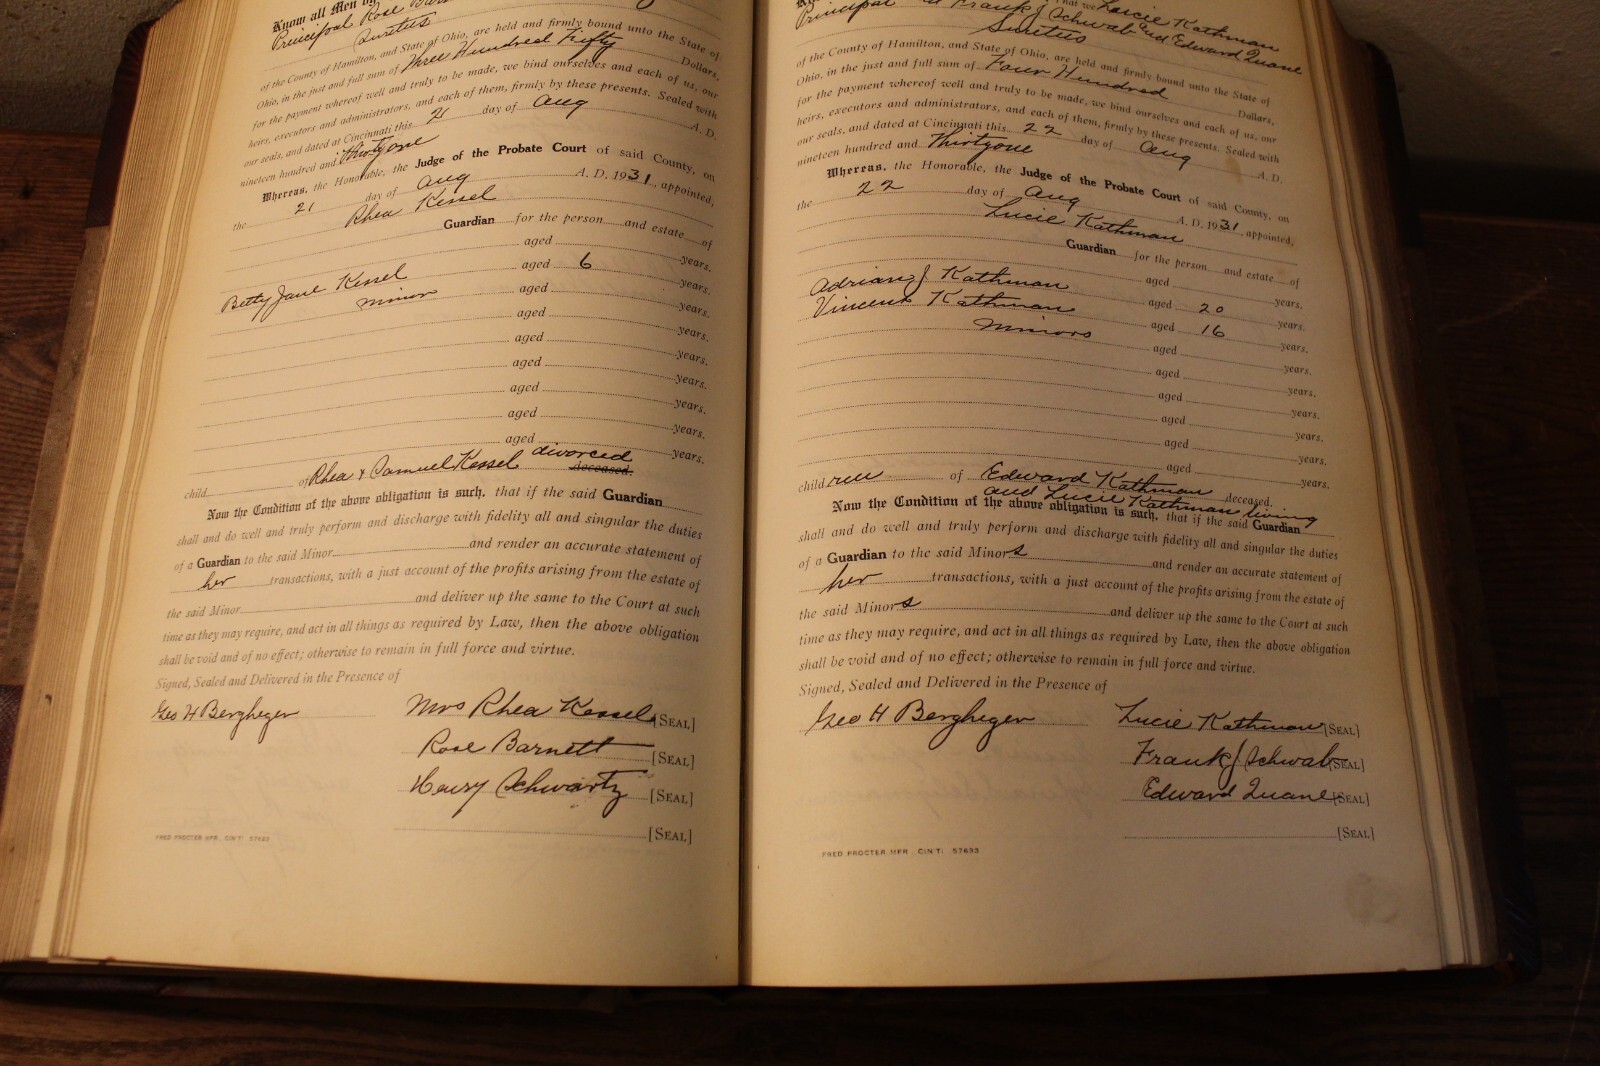 Know all Men by
Principal Rose
Sureties
of the County of Hamilton, and State of Ohio, are held and firmly bound unto the State of
Ohio, in the just and full sum of Three Hundred Fifty Dollars,
for the payment whereof well and truly to be made, we bind ourselves and each of us, our
heirs, executors and administrators, and each of them, firmly by these presents. Sealed with
our seals, and dated at Cincinnati this 21 day of Aug A. D.
nineteen hundred and thirtyone
Whereas, the Honorable, the Judge of the Probate Court of said County, on
the 21 day of Aug A. D. 1931, appointed,
Rhea Kessel
Guardian for the person and estate of
aged years.
Betty Jane Kessel aged 6 years.
minor aged years.
aged years.
aged years.
aged years.
aged years.
aged years.
aged years.
child of Rhea & Samuel Kessel divorced deceased.
Now the Condition of the above obligation is such, that if the said Guardian
shall and do well and truly perform and discharge with fidelity all and singular the duties
of a Guardian to the said Minor and render an accurate statement of
her transactions, with a just account of the profits arising from the estate of
the said Minor and deliver up the same to the Court at such
time as they may require, and act in all things as required by Law, then the above obligation
shall be void and of no effect; otherwise to remain in full force and virtue.
Signed, Sealed and Delivered in the Presence of
Geo H Bergheger Mrs Rhea Kessel [SEAL]
Rose Barnett [SEAL]
Henry Schwartz [SEAL]
[SEAL]
FRED PROCTER MFR. CIN'TI 57633
That we Lucie Kathman
Principal Frank J Schwab and Edward Quane
Sureties
of the County of Hamilton, and State of Ohio, are held and firmly bound unto the State of
Ohio, in the just and full sum of Four Hundred Dollars,
for the payment whereof well and truly to be made, we bind ourselves and each of us, our
heirs, executors and administrators, and each of them, firmly by these presents. Sealed with
our seals, and dated at Cincinnati this 22 day of Aug A. D.
nineteen hundred and Thirtyone
Whereas, the Honorable, the Judge of the Probate Court of said County, on
the 22 day of Aug A. D. 1931, appointed,
Lucie Kathman
Guardian for the person and estate of
aged years.
Adrian J Kathman aged 20 years.
Vincent Kathman aged 16 years.
Minors aged years.
aged years.
aged years.
aged years.
aged years.
aged years.
children of Edward Kathman deceased.
and Lucie Kathman living
Now the Condition of the above obligation is such, that if the said Guardian
shall and do well and truly perform and discharge with fidelity all and singular the duties
of a Guardian to the said Minors and render an accurate statement of
her transactions, with a just account of the profits arising from the estate of
the said Minors and deliver up the same to the Court at such
time as they may require, and act in all things as required by Law, then the above obligation
shall be void and of no effect; otherwise to remain in full force and virtue.
Signed, Sealed and Delivered in the Presence of
Geo H Bergheger Lucie Kathman [SEAL]
Frank J Schwab [SEAL]
Edward Quane [SEAL]
[SEAL]
FRED PROCTER MFR. CIN'TI 57633